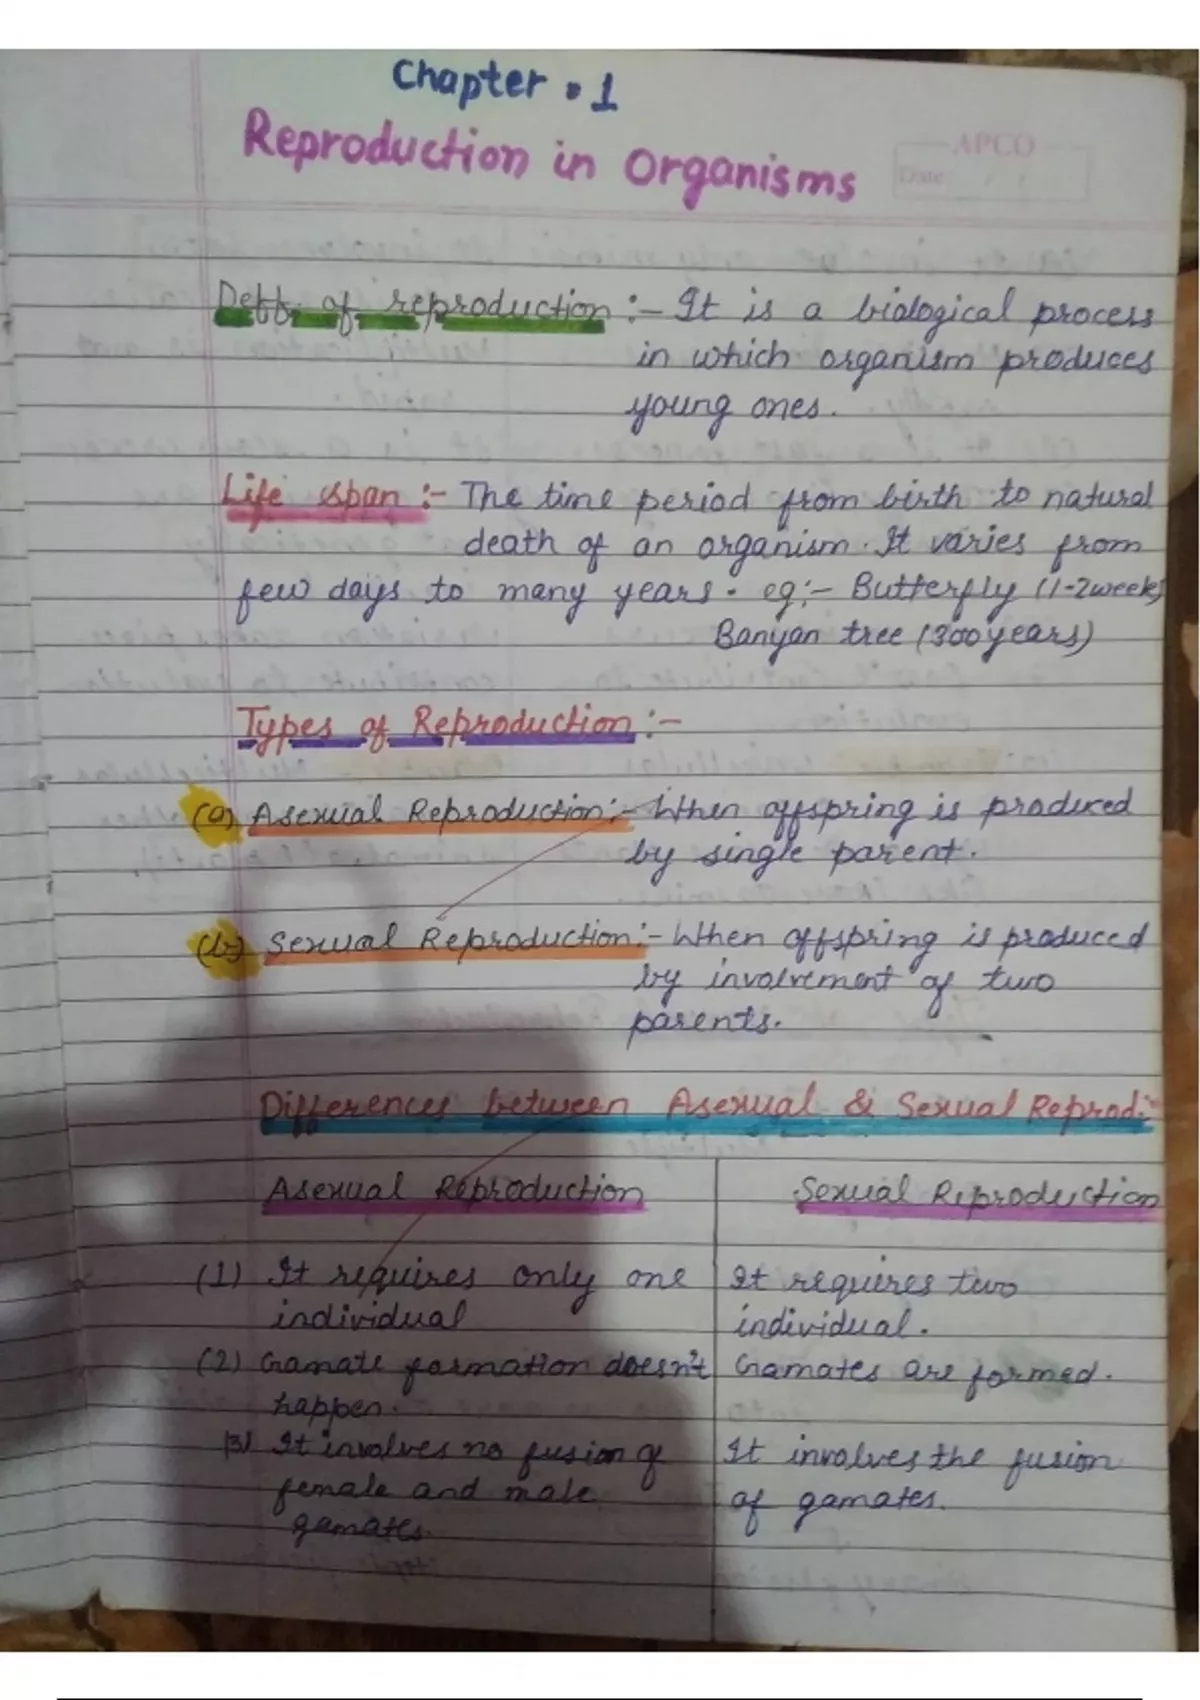 Chapter • 1
Reproduction in Organisms
APCO
Date / /
Deff. of reproduction :- It is a biological process
in which organism produces
young ones.
Life span :- The time period from birth to natural
death of an organism. It varies from
few days to many years. eg:- Butterfly (1-2 week)
Banyan tree (300 years)
Types of Reproduction :-
(a) Asexual Reproduction:- When offspring is produced
by single parent.
(b) Sexual Reproduction:- When offspring is produced
by involvement of two
parents.
Differences between Asexual & Sexual Reprod:-
Asexual Reproduction Sexual Reproduction
(1) It requires only one It requires two
individual individual.
(2) Gamate formation doesn't Gamates are formed.
happen.
(3) It involves no fusion of It involves the fusion
female and male of gamates.
gamates.